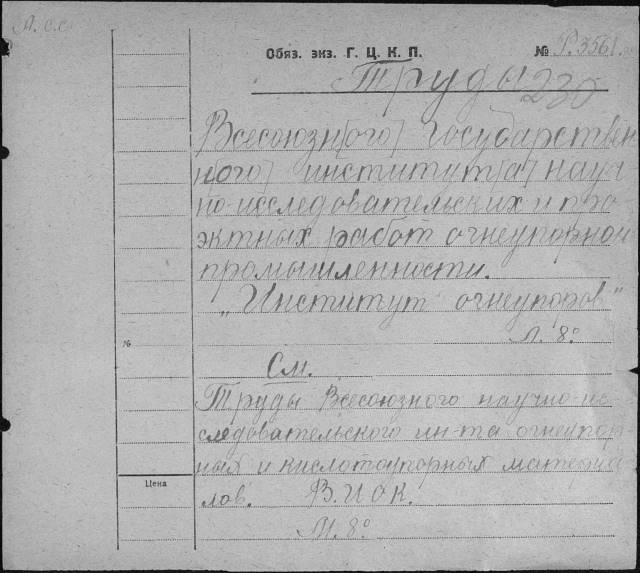 Обяз. экз. Г. Ц. К. П. № Р.3561
Труды 230
Всесоюзн[ого] Государствен
н[ого] институт[а] науч
но-исследовательских и про
эктных работ огнеупорной
промышленности.
„Институт огнеупоров"
Л. 8°
№
См.
Труды Всесоюзного научно-ис-
следовательского ин-та огнеупор
ных и кислотоупорных материа
Цена
лов. В.И О К.
М. 8°